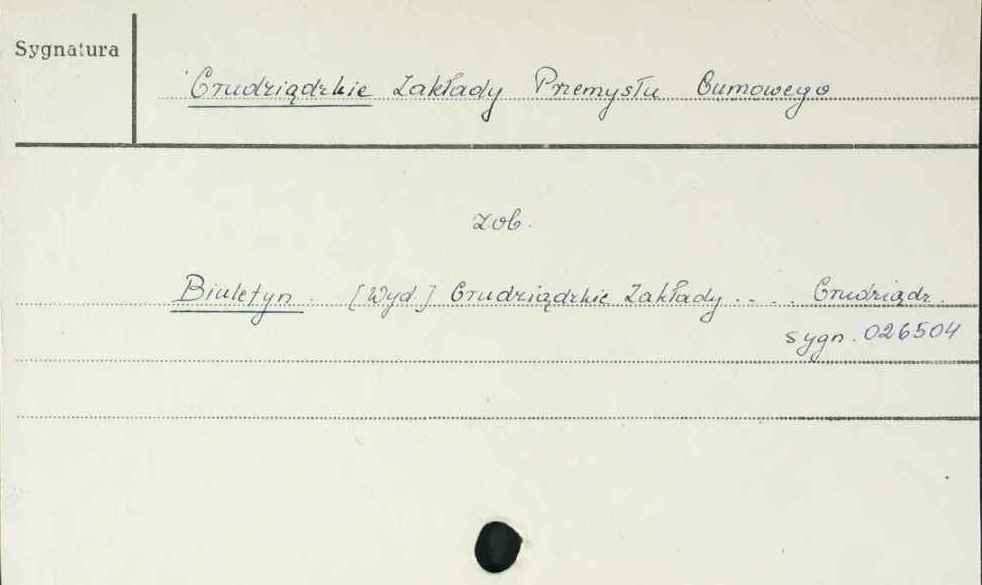 Sygnatura
Grudziądzkie Zakłady Przemysłu Gumowego
zob.
Biuletyn. [Wyd.] Grudziądzkie Zakłady .... Grudziądz.
sygn. 026504